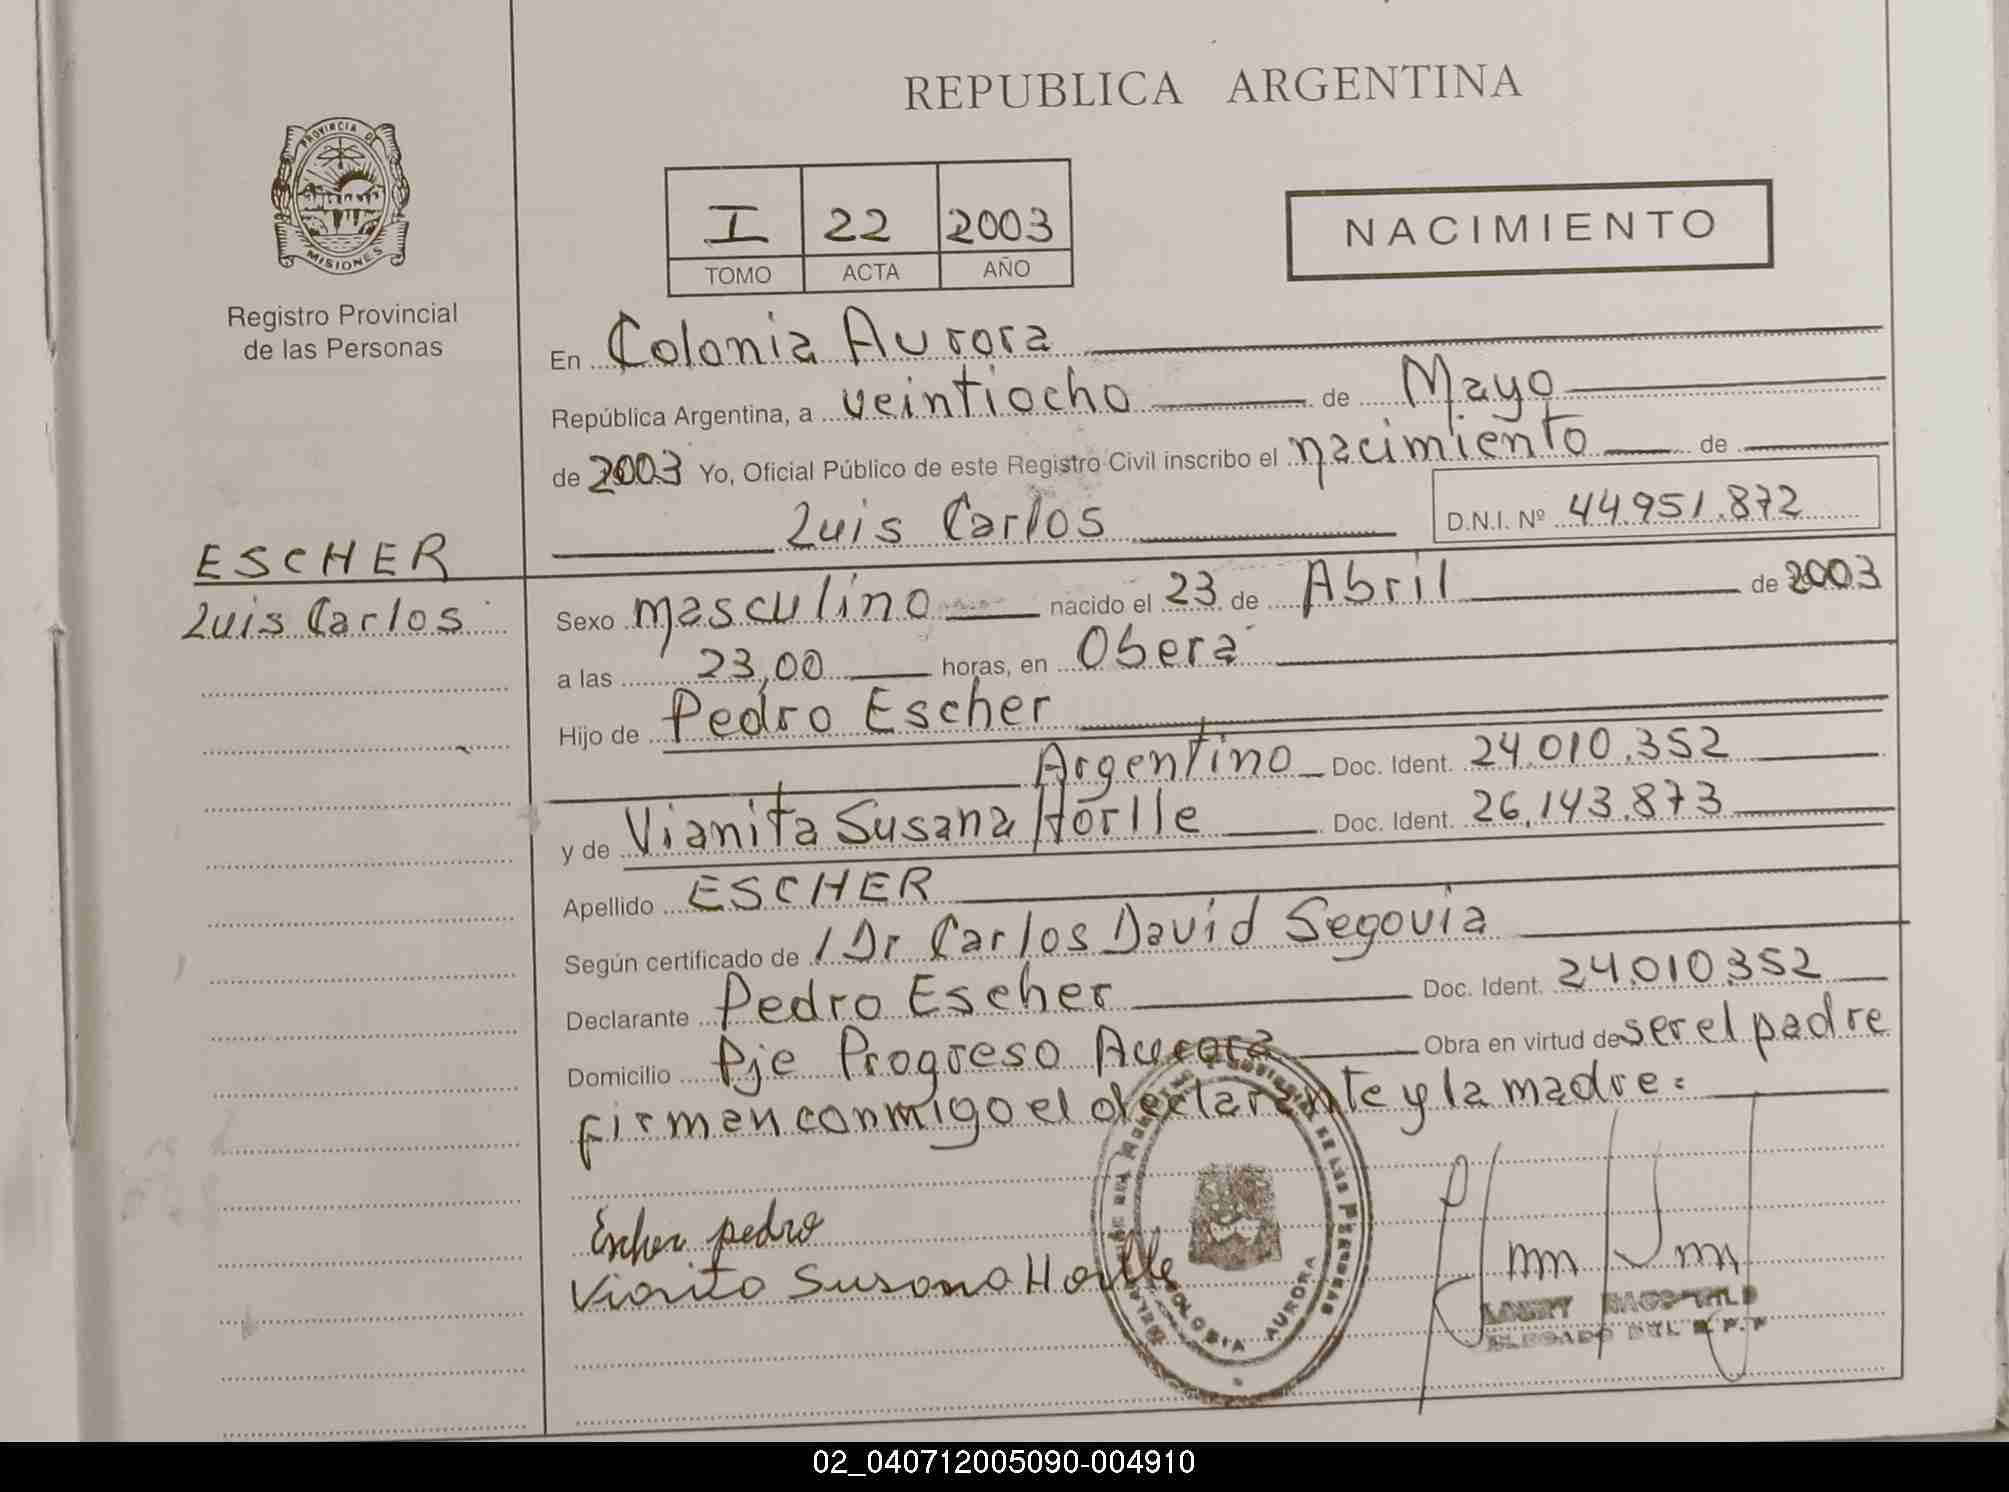 REPUBLICA ARGENTINA
PROVINCIA DE
MISIONES
Registro Provincial
de las Personas
I 22 2003
TOMO ACTA AÑO
NACIMIENTO
En Colonia Aurora
República Argentina, a veintiocho de Mayo
de 2003 Yo, Oficial Público de este Registro Civil inscribo el nacimiento de
Luis Carlos D.N.I. Nº 44.951.872
ESCHER
Luis Carlos
Sexo masculino nacido el 23 de Abril de 2003
a las 23,00 horas, en Oberá
Hijo de Pedro Escher
Argentino Doc. Ident. 24.010.352
y de Vianita Susana Horlle Doc. Ident. 26.143.873
Apellido ESCHER
Según certificado de Dr Carlos David Segovia
Declarante Pedro Escher Doc. Ident. 24.010.352
Domicilio Pje Progreso Aurora Obra en virtud de ser el padre
firman conmigo el declarante y la madre:
Escher pedro
Vianita Susana Horlle
DE LAS PERSONAS
COLONIA AURORA
DELEGADO DEL R.P.P
02_040712005090-004910